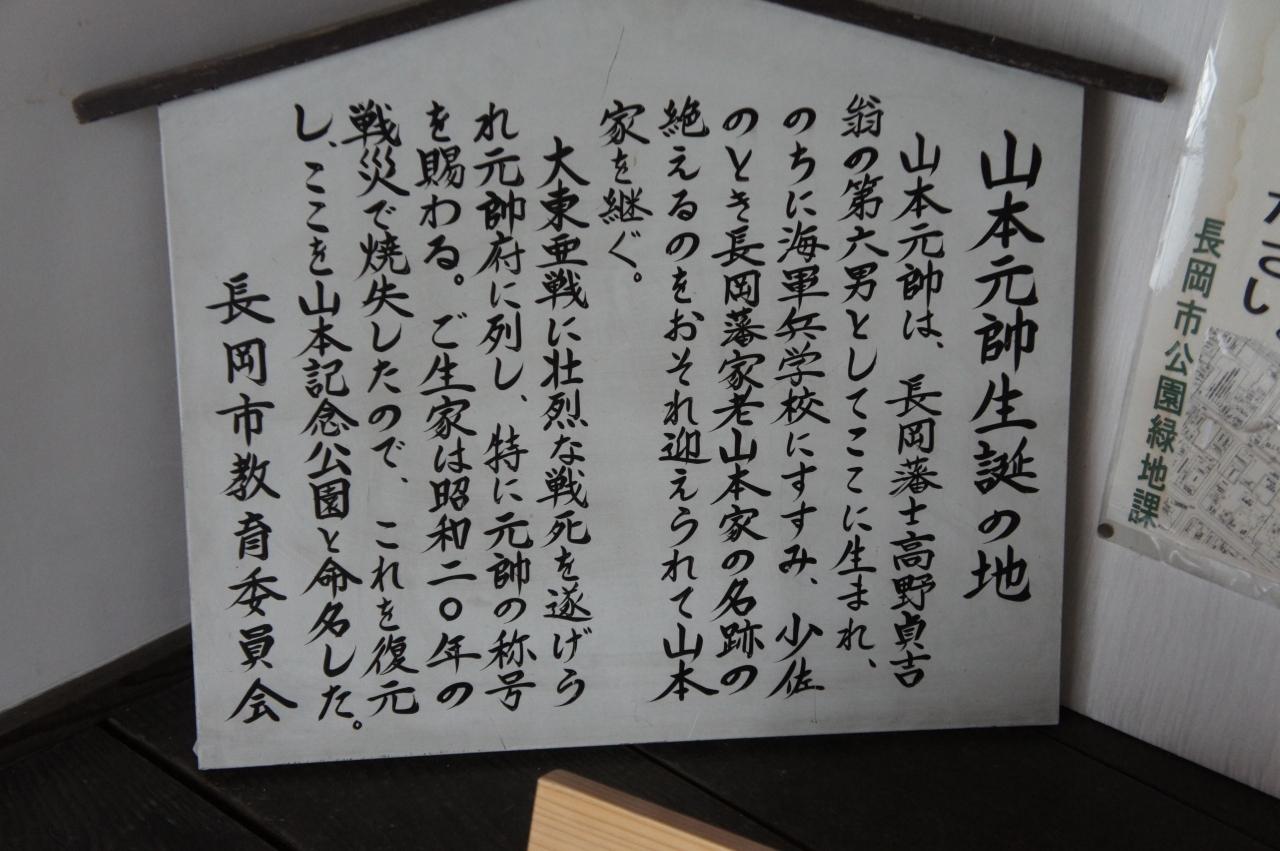 山本元帥生誕の地
山本元帥は、長岡藩士高野貞吉
翁の第六男としてここに生まれ、
のちに海軍兵学校にすすみ、少佐
のとき長岡藩家老山本家の名跡の
絶えるのをおそれ迎えられて山本
家を継ぐ。
大東亜戦に壮烈な戦死を遂げら
れ元帥府に列し、特に元帥の称号
を賜わる。ご生家は昭和二〇年の
戦災で焼失したので、これを復元
し、ここを山本記念公園と命名した。
長岡市教育委員会
ださい
長岡市公園緑地課